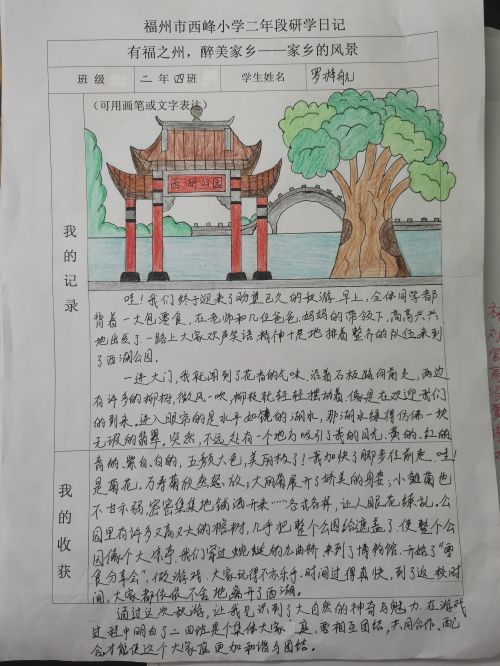 福州市西峰小学二年段研学日记
有福之州，醉美家乡——家乡的风景
班 级
二 年 四 班
学生姓名
罗梓航
（可用画笔或文字表达）
西湖公园
我的记录
哇！我们终于迎来了期盼已久的秋游。早上，全体同学都
背着一大包零食，在老师和几位爸爸、妈妈的带领下，高高兴兴
地出发了。一路上大家欢声笑语，精神十足地排着整齐的队伍来到
了西湖公园。
一进大门，我就闻到了花香的气味，沿着石板路向前走，两边
有许多的柳树，微风一吹，柳枝轻轻摆动着，像是在欢迎我们
的到来。进入眼帘的是水平如镜的湖水，那湖水绿得仿佛一块
无瑕的翡翠。突然，不远处有一个地方吸引了我的目光，黄的、红的
青的、紫的、白的，五颜六色，美丽极了！我加快了脚步往前走，哇！
我的收获
是菊花，万寿菊欣然怒放；大丽菊展开了娇美的身姿；小雏菊也
不甘示弱，密密集集地铺洒开来……各式各样，让人眼花缭乱。公
园里有许多又高又大的榕树，几乎把整个公园给遮盖了，使整个公
园像个大凉亭。我们穿过蜿蜒的九曲桥来到了博物馆，开始了“零
食分享会”，做游戏，大家玩得不亦乐乎。时间过得真快，到了返校时
间，大家都依依不舍地离开了西湖。
通过这次秋游，让我见识到了大自然的神奇与魅力，在游戏
过程中明白了二四班是个集体大家庭，要相互团结，共同合作、配
合才能使这个大家庭更加和谐与团结。